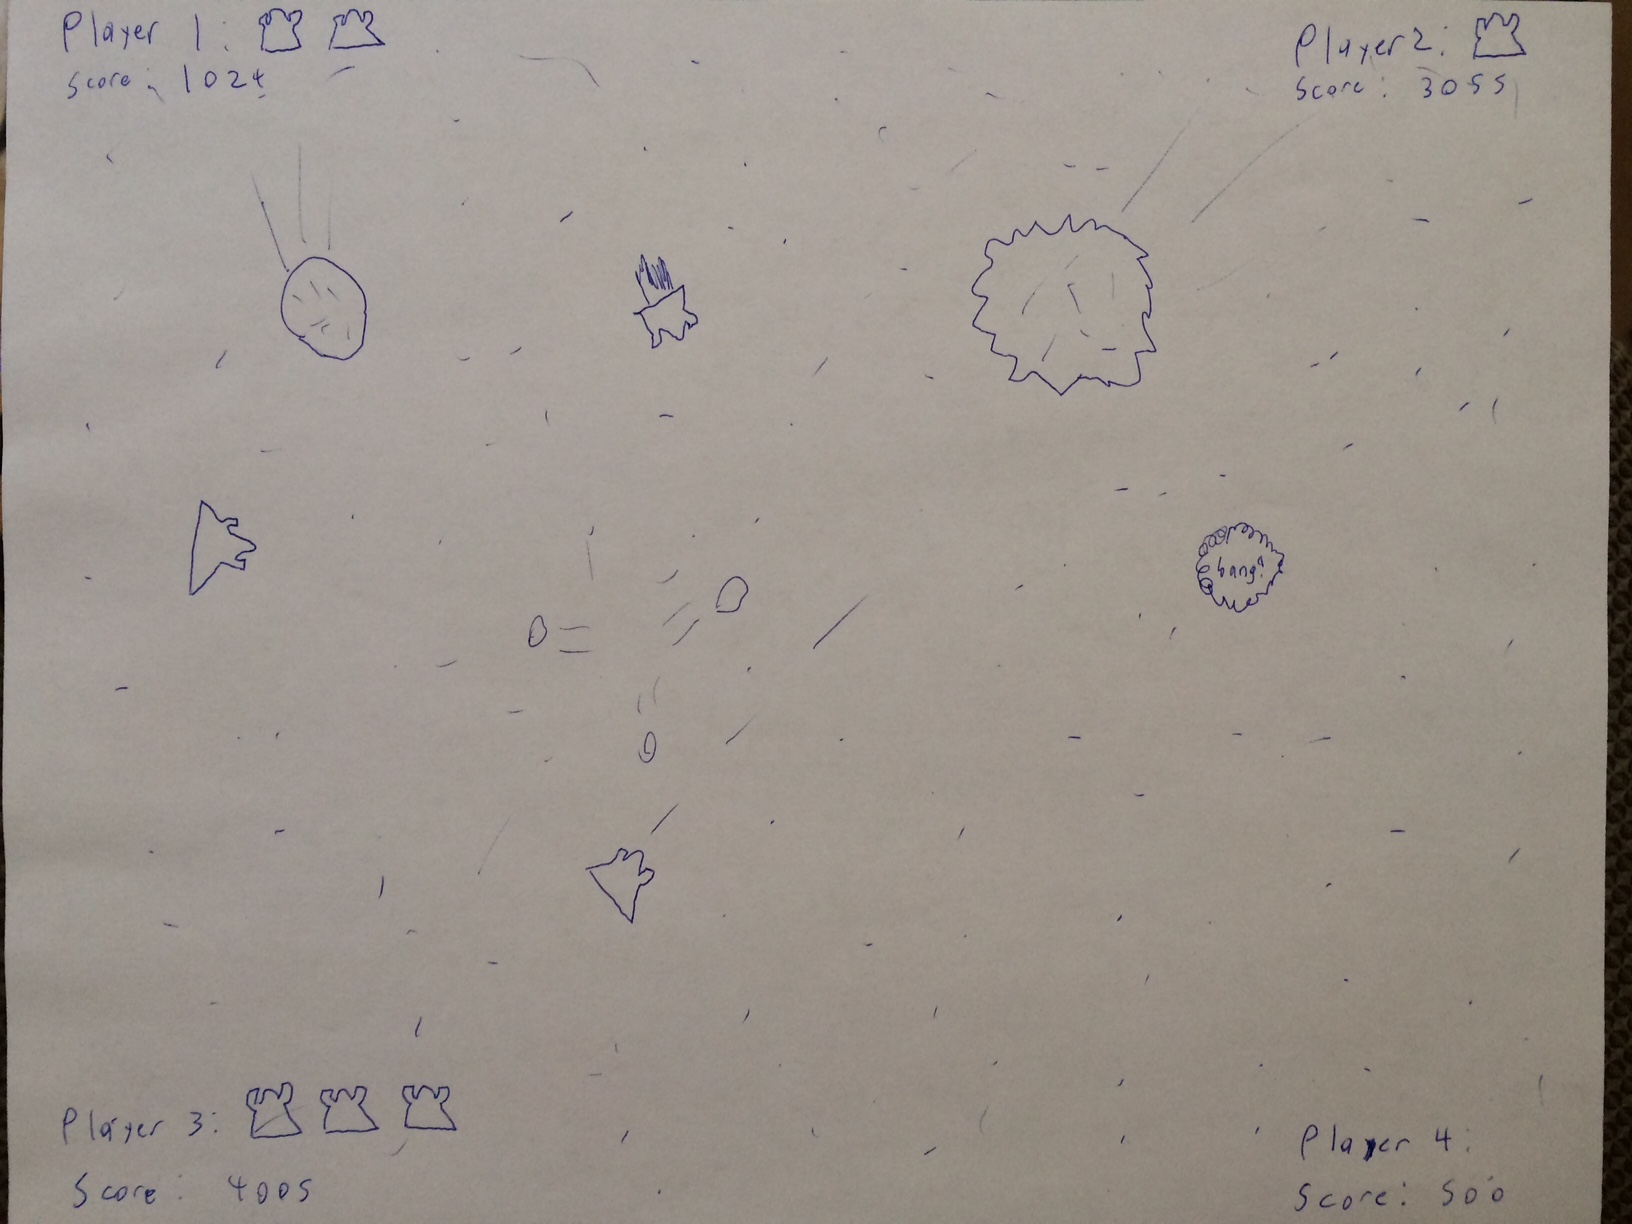 Player 1:
Score: 1024
Player 2:
Score: 3055
bang!
Player 3:
Score: 4005
Player 4:
Score: 500